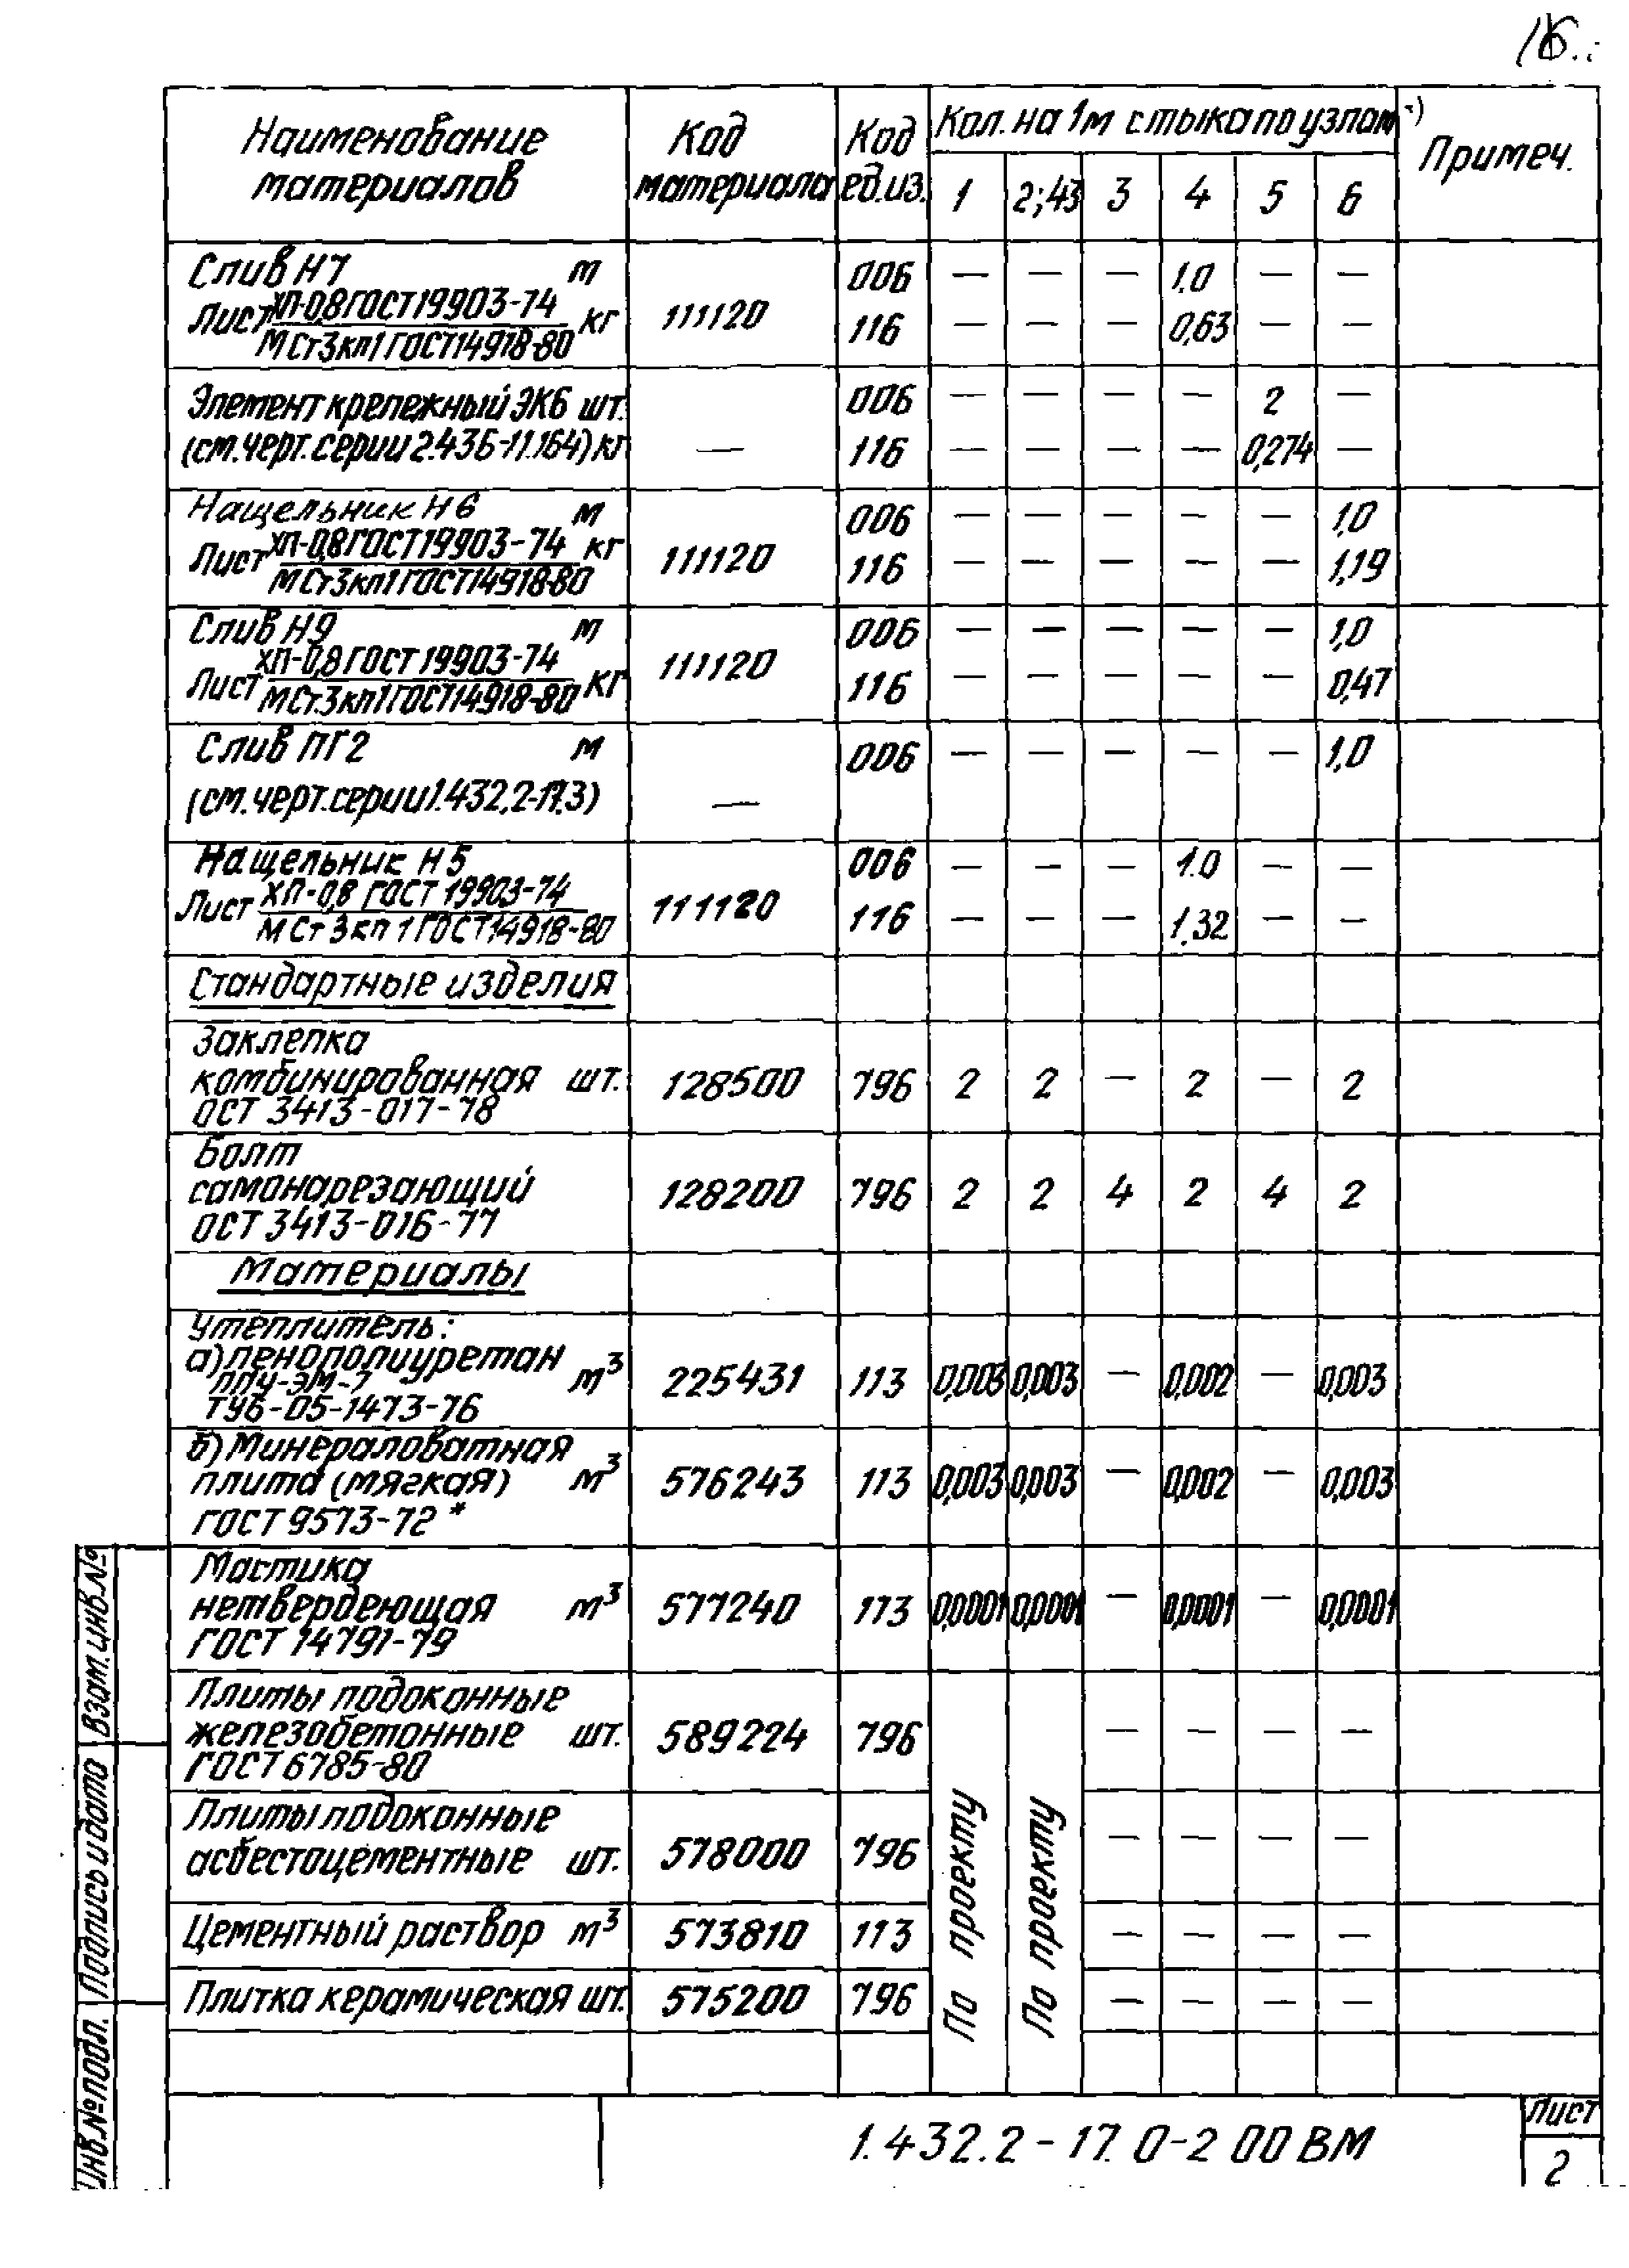 16.
Наименование материалов | Код материала | Код ед.из. | Кол. на 1м стыка по узлам | Примеч.
1 | 2;43 | 3 | 4 | 5 | 6
Слив Н7 м | 006 | — | — | — | 1.0 | — | —
Лист ХП-0,8 ГОСТ 19903-74 / МСт3кп1 ГОСТ 14918-80 кг | 111120 | 116 | — | — | — | 0,63 | — | —
Элемент крепежный ЭК6 шт. | 006 | — | — | — | — | 2 | —
(см. черт. серии 2.436-11.164) кг | — | 116 | — | — | — | — | 0,274 | —
Нащельник Н6 м | 006 | — | — | — | — | — | 1,0
Лист ХП-0,8 ГОСТ 19903-74 / МСт3кп1 ГОСТ 14918-80 кг | 111120 | 116 | — | — | — | — | — | 1,19
Слив Н9 м | 006 | — | — | — | — | — | 1,0
Лист ХП-0,8 ГОСТ 19903-74 / МСт.3кп1 ГОСТ 14918-80 кг | 111120 | 116 | — | — | — | — | — | 0,47
Слив ПГ2 м | 006 | — | — | — | — | — | 1,0
(см. черт. серии 1.432.2-17.3) | —
Нащельник Н5 | 006 | — | — | — | 1.0 | — | —
Лист ХП-0,8 ГОСТ 19903-74 / МСт3кп1 ГОСТ 14918-80 | 111120 | 116 | — | — | — | 1,32 | — | —
Стандартные изделия
Заклепка
комбинированная шт. | 128500 | 796 | 2 | 2 | — | 2 | — | 2
ОСТ 3413-017-78
Болт
самонарезающий | 128200 | 796 | 2 | 2 | 4 | 2 | 4 | 2
ОСТ 3413-016-77
Материалы
Утеплитель:
а) пенополиуретан м³ | 225431 | 113 | 0,003 | 0,003 | — | 0,002 | — | 0,003
ППУ-ЭМ-7
ТУ6-05-1473-76
б) Минераловатная
плита (мягкая) м³ | 576243 | 113 | 0,003 | 0,003 | — | 0,002 | — | 0,003
ГОСТ 9573-72*
Мастика
нетвердеющая м³ | 577240 | 113 | 0,0001 | 0,0001 | — | 0,0001 | — | 0,0001
ГОСТ 14791-79
Плиты подоконные
железобетонные шт. | 589224 | 796 | По проекту | По проекту | — | — | — | —
ГОСТ 6785-80
Плиты подоконные
асбестоцементные шт. | 578000 | 796 | — | — | — | —
Цементный раствор м³ | 573810 | 113 | — | — | — | —
Плитка керамическая шт. | 575200 | 796 | — | — | — | —
Инв.№ подл. | Подпись и дата | Взам.инв.№
1.432.2-17.0-2 00 ВМ
Лист
2